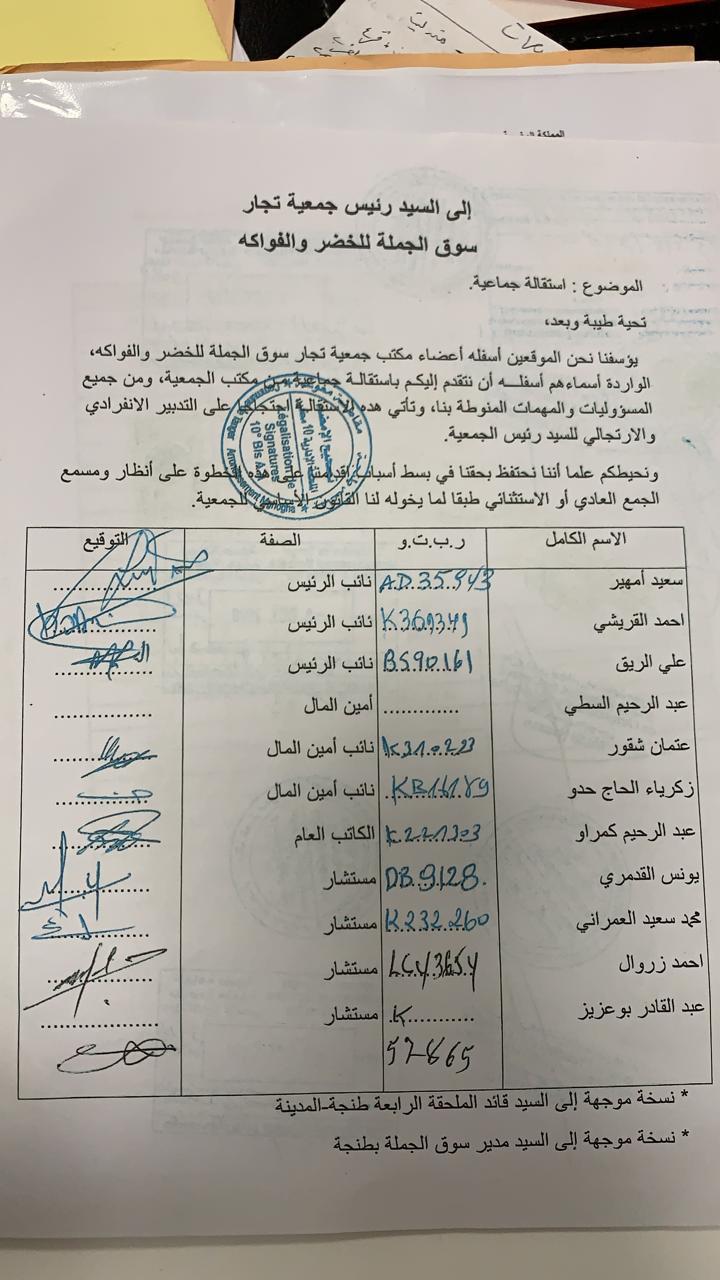 إلى السيد رئيس جمعية تجار
سوق الجملة للخضر والفواكه
الموضوع : استقالة جماعية.
تحية طيبة وبعد،
يؤسفنا نحن الموقعين أسفله أعضاء مكتب جمعية تجار سوق الجملة للخضر والفواكه،
الواردة أسماءهم أسفلـــه أن نتقدم إليكم باستقالة جماعية من مكتب الجمعية، ومن جميع
المسؤوليات والمهمات المنوطة بنا، وتأتي هذه الاستقالة احتجاجا على التدبير الانفرادي
والارتجالي للسيد رئيس الجمعية.
ونحيطكم علما أننا نحتفظ بحقنا في بسط أسباب إقدامنا على هذه الخطوة على أنظار ومسمع
الجمع العادي أو الاستثنائي طبقا لما يخوله لنا القانون الأساسي للجمعية.
Légalisation de
Signatures
10° Bis A.A
الاسم الكامل ر.ب.ت.و الصفة التوقيع
سعيد أمهير A.D.35.943 نائب الرئيس
احمد القريشي K369349 نائب الرئيس
علي الريق B590161 نائب الرئيس
عبد الرحيم السطي ............. أمين المال ..................
عثمان شقور K.310.223 نائب أمين المال
زكرياء الحاج حدو .KB16189 نائب أمين المال
عبد الرحيم كمراو K.221303 الكاتب العام
يونس القدمري DB.9128. مستشار
محمد سعيد العمراني K.232.260 مستشار
احمد زروال مستشار
عبد القادر بوعزيز K........... مستشار ....................
52865
* نسخة موجهة إلى السيد قائد الملحقة الرابعة طنجة-المدينة
* نسخة موجهة إلى السيد مدير سوق الجملة بطنجة